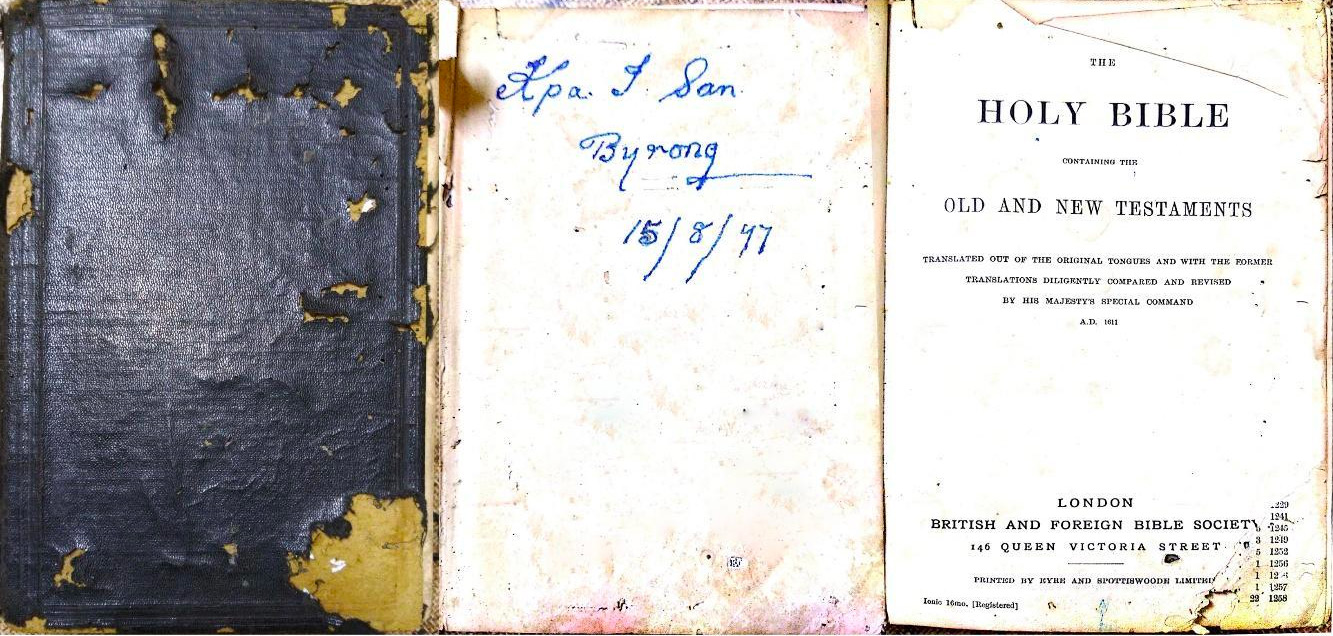 Kpa. I. San.
Byrong
15/8/77
THE
HOLY BIBLE
CONTAINING THE
OLD AND NEW TESTAMENTS
TRANSLATED OUT OF THE ORIGINAL TONGUES AND WITH THE FORMER
TRANSLATIONS DILIGENTLY COMPARED AND REVISED
BY HIS MAJESTY'S SPECIAL COMMAND
A.D. 1611
LONDON
BRITISH AND FOREIGN BIBLE SOCIETY
146 QUEEN VICTORIA STREET
PRINTED BY EYRE AND SPOTTISWOODE LIMITED
Ionic 16mo. [Registered]
1241
1245
3 1249
5 1252
1 1256
1
1 1257
22 1258